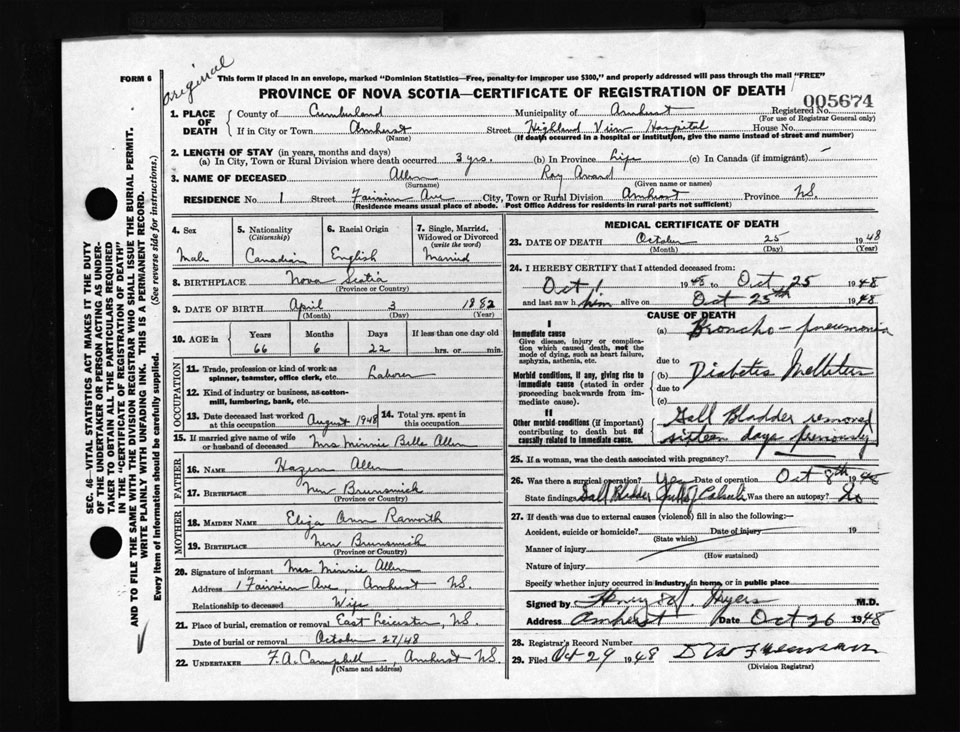 FORM 6
original
This form if placed in an envelope, marked "Dominion Statistics—Free, penalty for improper use $300," and properly addressed will pass through the mail "FREE"
PROVINCE OF NOVA SCOTIA—CERTIFICATE OF REGISTRATION OF DEATH
005674
1. PLACE OF DEATH County of Cumberland Municipality of Amherst Registered No.
(For use of Registrar General only)
If in City or Town Amherst Street Highland View Hospital House No.
(Name) (If death occurred in a hospital or institution, give the name instead of street and number)
2. LENGTH OF STAY (in years, months and days)
(a) In City, Town or Rural Division where death occurred 3 yrs. (b) In Province Life (c) In Canada (if immigrant) —
3. NAME OF DECEASED Allen Roy Avard
(Surname) (Given name or names)
RESIDENCE No. 1 Street Fairview Ave City, Town or Rural Division Amherst Province NS.
(Residence means usual place of abode. Post Office Address for residents in rural parts not sufficient)
4. Sex
Male
5. Nationality (Citizenship)
Canadian
6. Racial Origin
English
7. Single, Married, Widowed or Divorced (write the word)
Married
8. BIRTHPLACE Nova Scotia
(Province or Country)
9. DATE OF BIRTH April 3 1882
(Month) (Day) (Year)
10. AGE in Years Months Days If less than one day old
66 6 22 hrs. or min.
OCCUPATION
11. Trade, profession or kind of work as spinner, teamster, office clerk, etc. Laborer
12. Kind of industry or business, as cotton-mill, lumbering, bank, etc.
13. Date deceased last worked at this occupation August 1948 14. Total yrs. spent in this occupation
15. If married give name of wife or husband of deceased Mrs Minnie Belle Allen
FATHER
16. NAME Hazen Allen
17. BIRTHPLACE New Brunswick
(Province or Country)
MOTHER
18. MAIDEN NAME Eliza Ann
19. BIRTHPLACE New Brunswick
(Province or Country)
20. Signature of informant Mrs Minnie Allen
Address 1 Fairview Ave, Amherst NS
Relationship to deceased Wife
21. Place of burial, cremation or removal East Leicester, NS.
Date of burial or removal October 27/48
22. UNDERTAKER F. A. Campbell, Amherst NS.
(Name and address)
MEDICAL CERTIFICATE OF DEATH
23. DATE OF DEATH October 25 1948
(Month) (Day) (Year)
24. I HEREBY CERTIFY that I attended deceased from:
Oct 1 1948 to Oct 25 1948
and last saw h im alive on Oct 25th 1948
CAUSE OF DEATH
I
Immediate cause
Give disease, injury or complication which caused death, not the mode of dying, such as heart failure, asphyxia, asthenia, etc.
(a) Broncho-pneumonia
due to
Morbid conditions, if any, giving rise to immediate cause (stated in order proceeding backwards from immediate cause).
(b) Diabetes Mellitus
due to
(c)
II
Other morbid conditions (if important) contributing to death but not causally related to immediate cause.
Gall Bladder removed
sixteen days previously
25. If a woman, was the death associated with pregnancy?
26. Was there a surgical operation? Yes Date of operation Oct 8th 1948
State findings Gall Bladder full of Calculi Was there an autopsy? No
27. If death was due to external causes (violence) fill in also the following:—
Accident, suicide or homicide? Date of injury 19
(State which)
Manner of injury
(How sustained)
Nature of injury
Specify whether injury occurred in industry, in home, or in public place
Signed by M.D.
Address Amherst Date Oct 26 1948
28. Registrar's Record Number
29. Filed Oct 29 1948
(Division Registrar)
SEC. 46—VITAL STATISTICS ACT MAKES IT THE DUTY
OF THE UNDERTAKER OR PERSON ACTING AS UNDER-
TAKER TO OBTAIN ALL THE PARTICULARS REQUIRED
IN THE "CERTIFICATE OF REGISTRATION OF DEATH"
AND TO FILE THE SAME WITH THE DIVISION REGISTRAR WHO SHALL ISSUE THE BURIAL PERMIT.
WRITE PLAINLY WITH UNFADING INK. THIS IS A PERMANENT RECORD.
Every item of information should be carefully supplied. (See reverse side for instructions.)